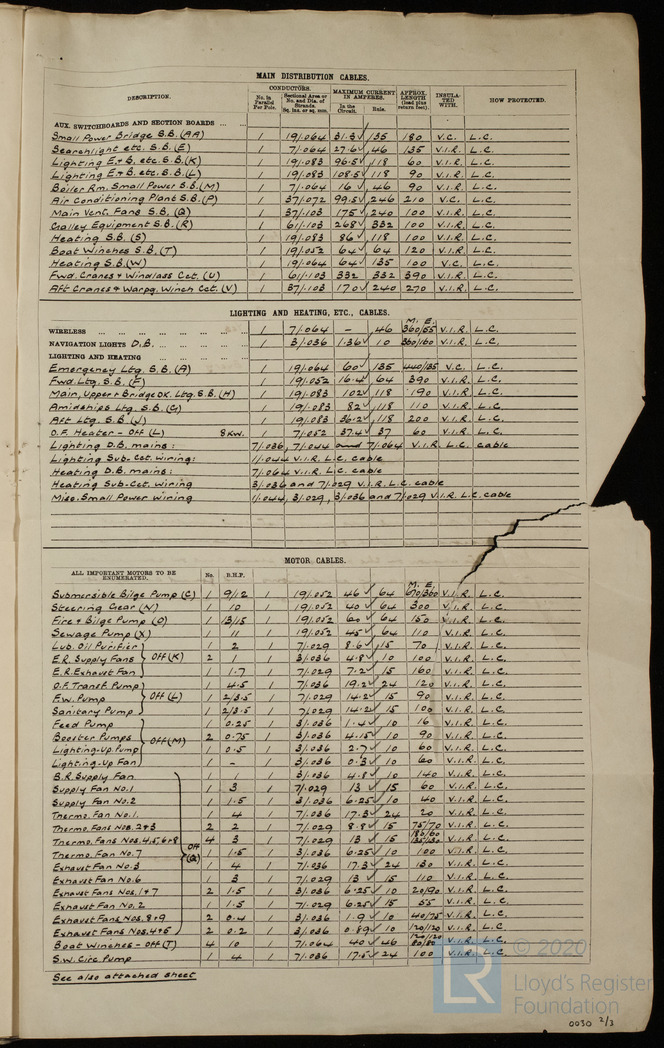 MAIN DISTRIBUTION CABLES.
DESCRIPTION. CONDUCTORS. MAXIMUM CURRENT IN AMPERES. APPROX. LENGTH (lead plus return feet). INSULATED WITH. HOW PROTECTED.
No. in Parallel Per Pole. Sectional Area or No. and Dia. of Strands. Sq. ins. or sq. mm. In the Circuit. Rule.
AUX. SWITCHBOARDS AND SECTION BOARDS ... ...
Small Power Bridge S.B. (AA) 1 19/.064 31.5 ✓ 135 180 V.C. L.C.
Searchlight etc. S.B. (E) 1 7/.064 27.6 ✓ 46 135 V.I.R. L.C.
Lighting E.&B. etc. S.B. (K) 1 19/.083 96.5 ✓ 118 60 V.I.R. L.C.
Lighting E.&B. etc. S.B. (L) 1 19/.083 108.5 ✓ 118 90 V.I.R. L.C.
Boiler Rm. Small Power S.B. (M) 1 7/.064 16 ✓ 46 90 V.I.R. L.C.
Air Conditioning Plant S.B. (P) 1 37/.072 99.5 ✓ 246 210 V.C. L.C.
Main Vent. Fans S.B. (Q) 1 37/.103 175 ✓ 240 100 V.I.R. L.C.
Galley Equipment S.B. (R) 1 61/.103 268 ✓ 332 100 V.I.R. L.C.
Heating S.B. (S) 1 19/.083 86 ✓ 118 100 V.I.R. L.C.
Boat Winches S.B. (T) 1 19/.052 64 ✓ 64 120 V.I.R. L.C.
Heating S.B. (W) 1 19/.064 64 ✓ 135 100 V.C. L.C.
Fwd. Cranes & Windlass Cct. (U) 1 61/.103 332 332 390 V.I.R. L.C.
Aft Cranes & Warpg. Winch Cct. (V) 1 37/.103 170 ✓ 240 270 V.I.R. L.C.
LIGHTING AND HEATING, ETC., CABLES.
M. E.
WIRELESS ... ... ... 1 7/.064 – 46 360/55 V.I.R. L.C.
NAVIGATION LIGHTS D.B. 1 3/.036 1.36 ✓ 10 360/160 V.I.R. L.C.
LIGHTING AND HEATING
Emergency Ltg. S.B. (A) 1 19/.064 60 ✓ 135 440/135 V.C. L.C.
Fwd. Ltg. S.B. (F) 1 19/.052 16.4 ✓ 64 390 V.I.R. L.C.
Main, Upper & Bridge DK. Ltg. S.B. (H) 1 19/.083 102 ✓ 118 190 V.I.R. L.C.
Amidships Ltg. S.B. (G) 1 19/.083 82 ✓ 118 110 V.I.R. L.C.
Aft Ltg. S.B. (J) 1 19/.083 36.2 ✓ 118 200 V.I.R. L.C.
O.F. Heater – Off (L) 8 KW. 1 7/.052 37.4 ✓ 37 60 V.I.R. L.C.
Lighting D.B. mains: 7/.036, 7/.044 and 7/.064 V.I.R. L.C. cable
Lighting Sub-Cct. wiring: 1/.044 V.I.R. L.C. cable
Heating D.B. mains: 7/.064 V.I.R. L.C. cable
Heating Sub-Cct. wiring 3/.036 and 7/.029 V.I.R. L.C. cable
Misc. Small Power wiring 1/.044, 3/.029, 3/.036 and 7/.029 V.I.R. L.C. cable
MOTOR CABLES.
ALL IMPORTANT MOTORS TO BE ENUMERATED. No. B.H.P.
M. E.
Submersible Bilge Pump (C) 1 9/12 1 19/.052 46 ✓ 64 670/360 V.I.R. L.C.
Steering Gear (N) 1 10 1 19/.052 40 ✓ 64 300 V.I.R. L.C.
Fire & Bilge Pump (O) 1 13/15 1 19/.052 60 ✓ 64 150 V.I.R. L.C.
Sewage Pump (X) 1 11 1 19/.052 45 ✓ 64 110 V.I.R. L.C.
Lub. Oil Purifier 1 2 1 7/.029 8.6 ✓ 15 70 V.I.R. L.C.
E.R. Supply Fans Off (K) 2 1 1 3/.036 4.8 ✓ 10 100 V.I.R. L.C.
E.R. Exhaust Fan 1 1.7 1 7/.029 7.2 ✓ 15 160 V.I.R. L.C.
O.F. Transf. Pump 1 4.5 1 7/.036 19.2 ✓ 24 120 V.I.R. L.C.
F.W. Pump Off (L) 1 2/3.5 1 7/.029 14.2 ✓ 15 90 V.I.R. L.C.
Sanitary Pump 1 2/3.5 1 7/.029 14.2 ✓ 15 100 V.I.R. L.C.
Feed Pump 1 0.25 1 3/.036 1.4 ✓ 10 16 V.I.R. L.C.
Booster Pumps Off (M) 2 0.75 1 3/.036 4.15 ✓ 10 90 V.I.R. L.C.
Lighting-Up Pump 1 0.5 1 3/.036 2.7 ✓ 10 60 V.I.R. L.C.
Lighting-Up Fan 1 – 1 3/.036 0.3 ✓ 10 60 V.I.R. L.C.
B.R. Supply Fan 1 1 1 3/.036 4.8 ✓ 10 140 V.I.R. L.C.
Supply Fan No. 1 1 3 1 7/.029 13 ✓ 15 60 V.I.R. L.C.
Supply Fan No. 2 1 1.5 1 3/.036 6.25 ✓ 10 40 V.I.R. L.C.
Thermo. Fan No. 1. 1 4 1 7/.036 17.3 ✓ 24 20 V.I.R. L.C.
Thermo. Fans Nos. 2&3 2 2 1 7/.029 8.8 ✓ 15 75/70 V.I.R. L.C.
Thermo. Fans Nos. 4,5,6&8 Off (Q) 4 3 1 7/.029 13 ✓ 15 185/60 135/130 V.I.R. L.C.
Thermo. Fan No. 7 1 1.5 1 3/.036 6.25 ✓ 10 100 V.I.R. L.C.
Exhaust Fan No. 3 1 4 1 7/.036 17.3 ✓ 24 130 V.I.R. L.C.
Exhaust Fan No. 6 1 3 1 7/.029 13 ✓ 15 110 V.I.R. L.C.
Exhaust Fans Nos. 1&7 2 1.5 1 3/.036 6.25 ✓ 10 20/90 V.I.R. L.C.
Exhaust Fan No. 2 1 1.5 1 7/.029 6.25 ✓ 15 55 V.I.R. L.C.
Exhaust Fans Nos. 8&9 2 0.4 1 3/.036 1.9 ✓ 10 40/75 V.I.R. L.C.
Exhaust Fans Nos. 4&5 2 0.2 1 3/.036 0.89 ✓ 10 120/120 V.I.R. L.C.
Boat Winches – Off (T) 4 10 1 7/.064 40 ✓ 46 120/120 80/80 V.I.R. L.C.
S.W. Circ. Pump 1 4 1 7/.036 17.5 ✓ 24 100 V.I.R. L.C.
See also attached sheet
© 2020
LR
Lloyd's Register
Foundation
0030 2/3